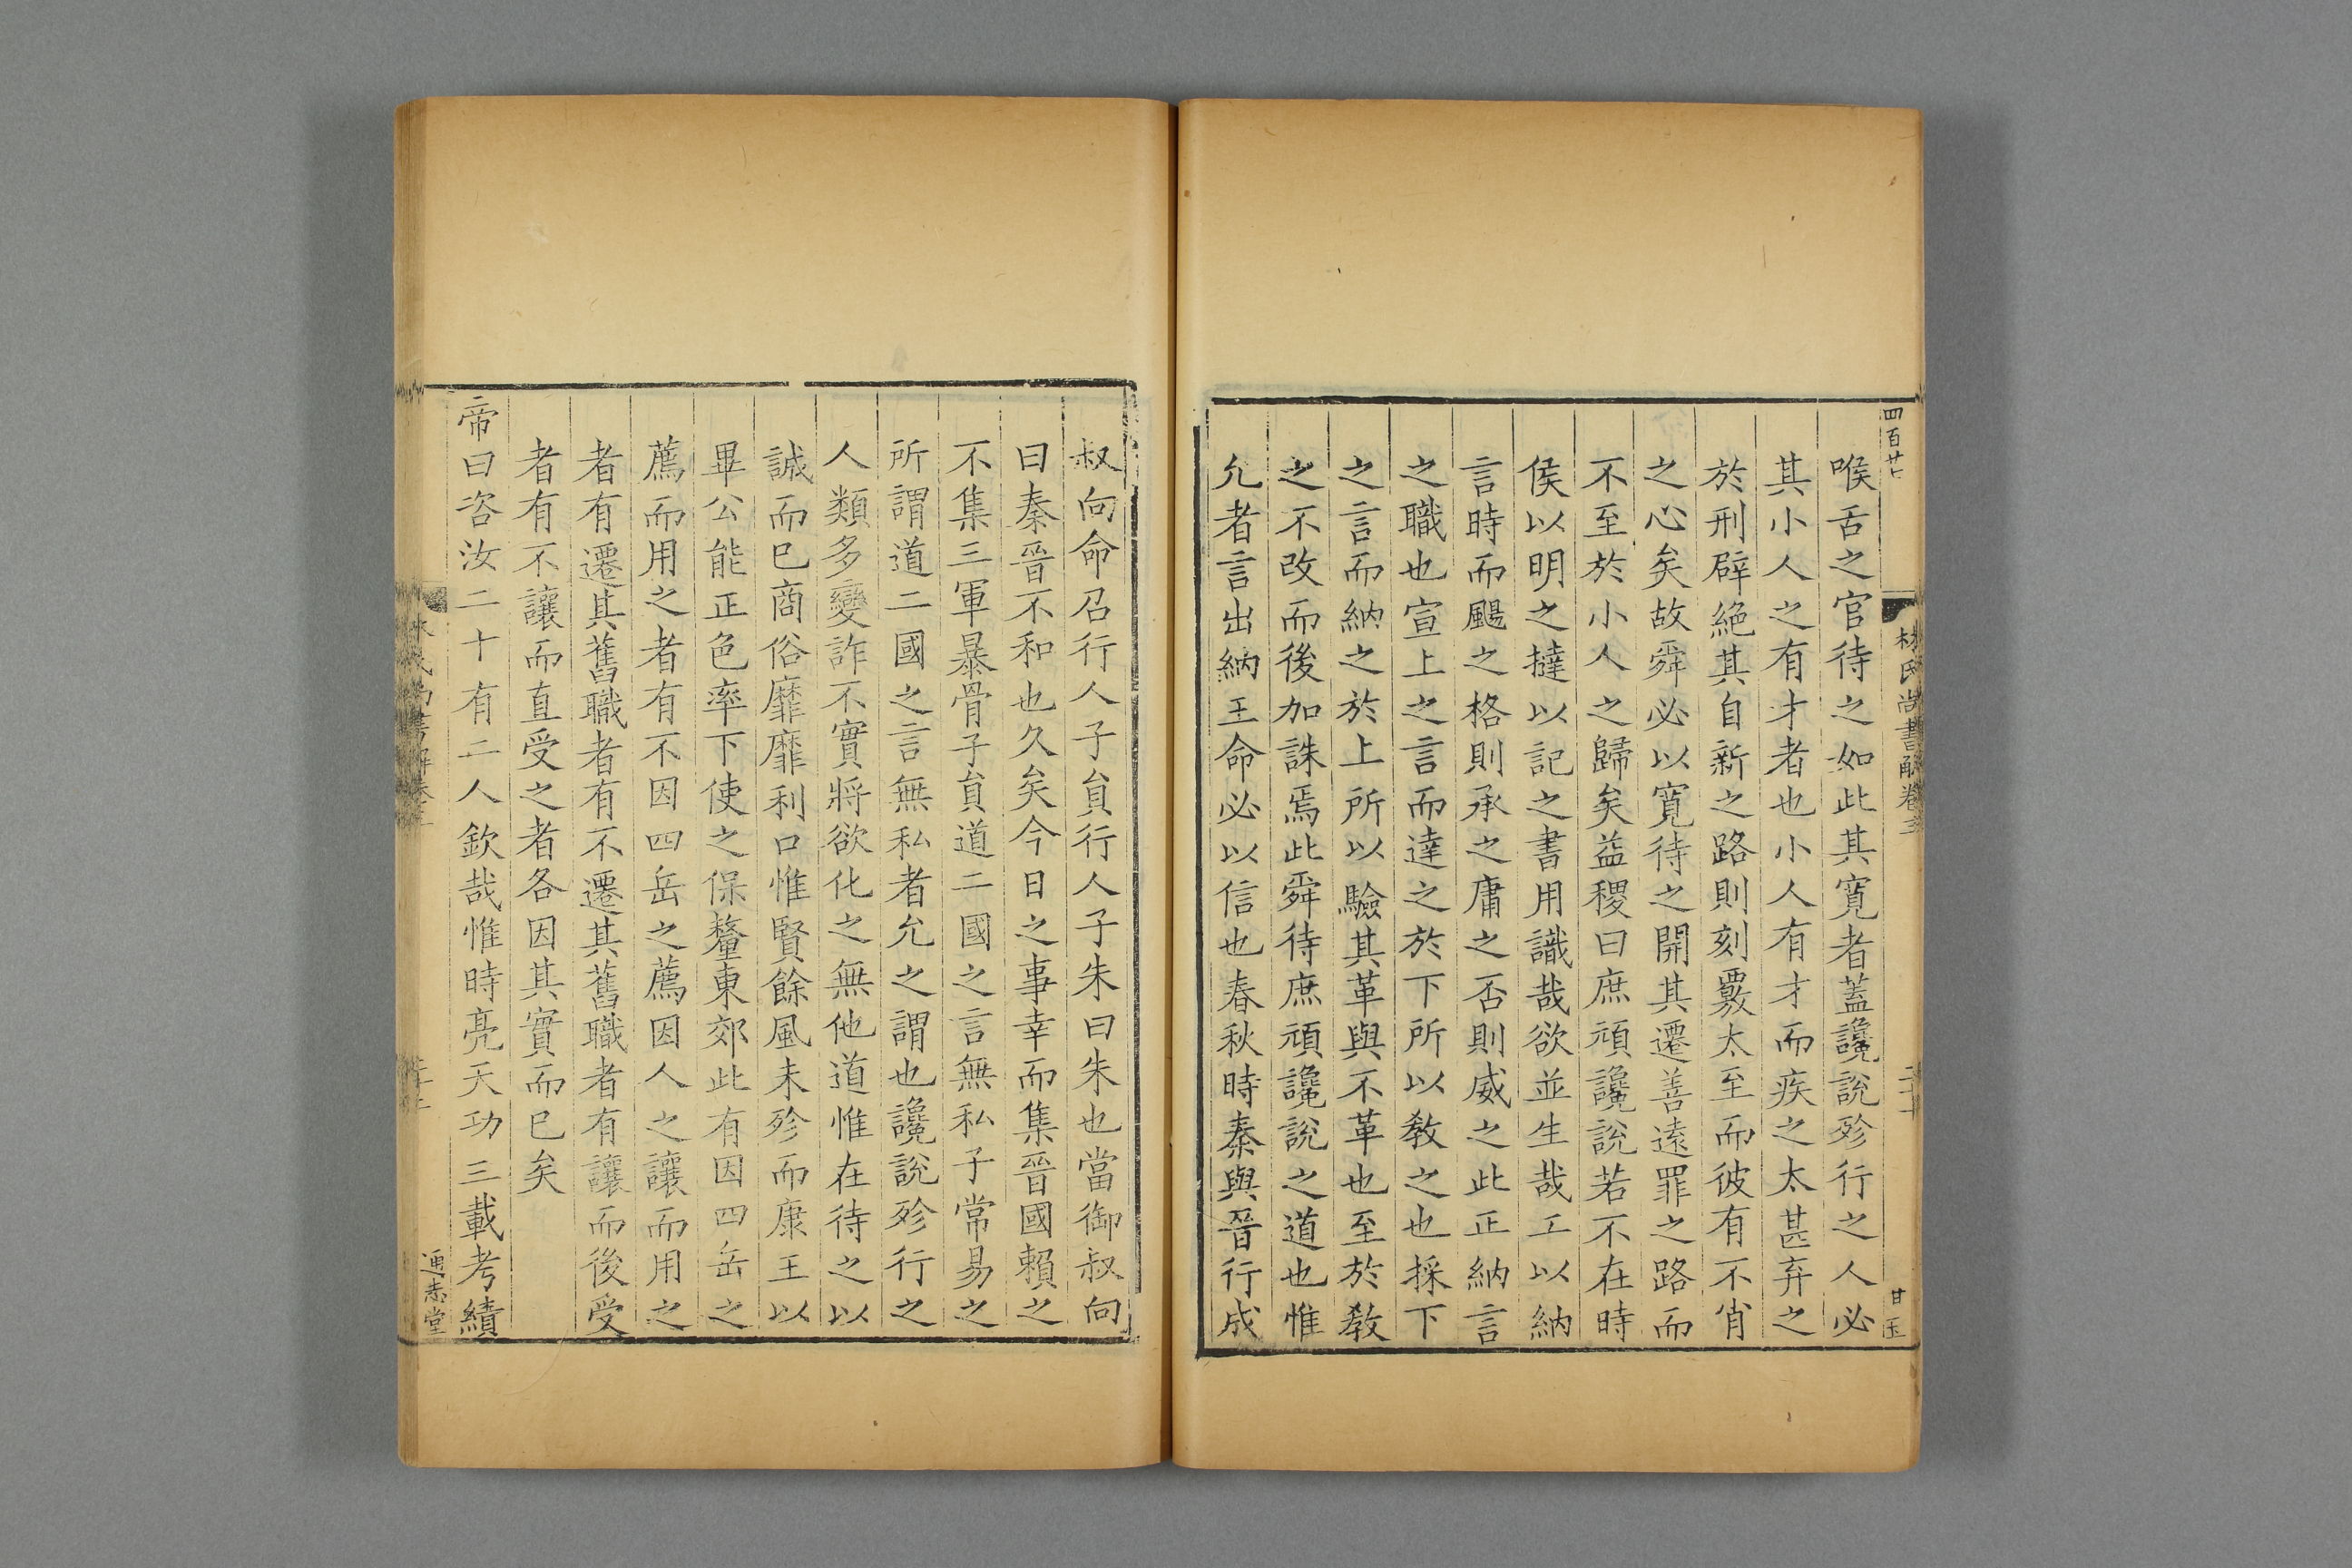 四百廿七
林氏尚書解卷三
二十一
甘玉
喉舌之官待之如此其寛者蓋讒說殄行之人必
其小人之有才者也小人有才而疾之太甚弃之
於刑辟絶其自新之路則刻覈太至而彼有不肖
之心矣故舜必以寛待之開其遷善遠罪之路而
不至於小人之歸矣益稷曰庶頑讒說若不在時
侯以明之撻以記之書用識哉欲並生哉工以納
言時而颺之格則承之庸之否則威之此正納言
之職也宣上之言而達之於下所以教之也採下
之言而納之於上所以驗其革與不革也至於教
之不改而後加誅焉此舜待庶頑讒說之道也惟
允者言出納王命必以信也春秋時秦與晉行成
叔向命召行人子貟行人子朱曰朱也當御叔向
曰秦晉不和也久矣今日之事幸而集晉國賴之
不集三軍暴骨子貟道二國之言無私子常易之
所謂道二國之言無私者允之謂也讒說殄行之
人類多變詐不實將欲化之無他道惟在待之以
誠而已商俗靡靡利口惟賢餘風未殄而康王以
畢公能正色率下使之保釐東郊此有因四岳之
薦而用之者有不因四岳之薦因人之讓而用之
者有遷其舊職者有不遷其舊職者有讓而後受
者有不讓而直受之者各因其實而已矣
帝曰咨汝二十有二人欽哉惟時亮天功三載考績
通志堂